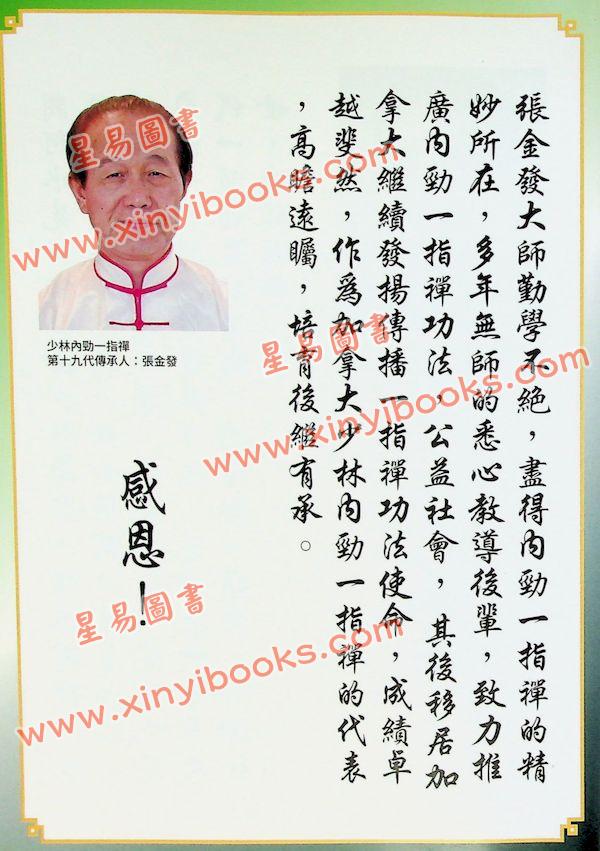 張金發大師勤學不絕，盡得內勁一指禪的精
妙所在，多年無師的悉心教導後輩，致力推
廣內勁一指禪功法，公益社會，其後移居加
拿大繼續發揚傳播一指禪功法使命，成績卓
越斐然，作爲加拿大少林內勁一指禪的代表
，高瞻遠矚，培育後繼有承。
感恩！
少林內勁一指禪
第十九代傳承人：張金發
星易圖書
www.xinyibooks.com
星易圖書
www.xinyibooks.com
星易圖書
www.xinyibooks.com